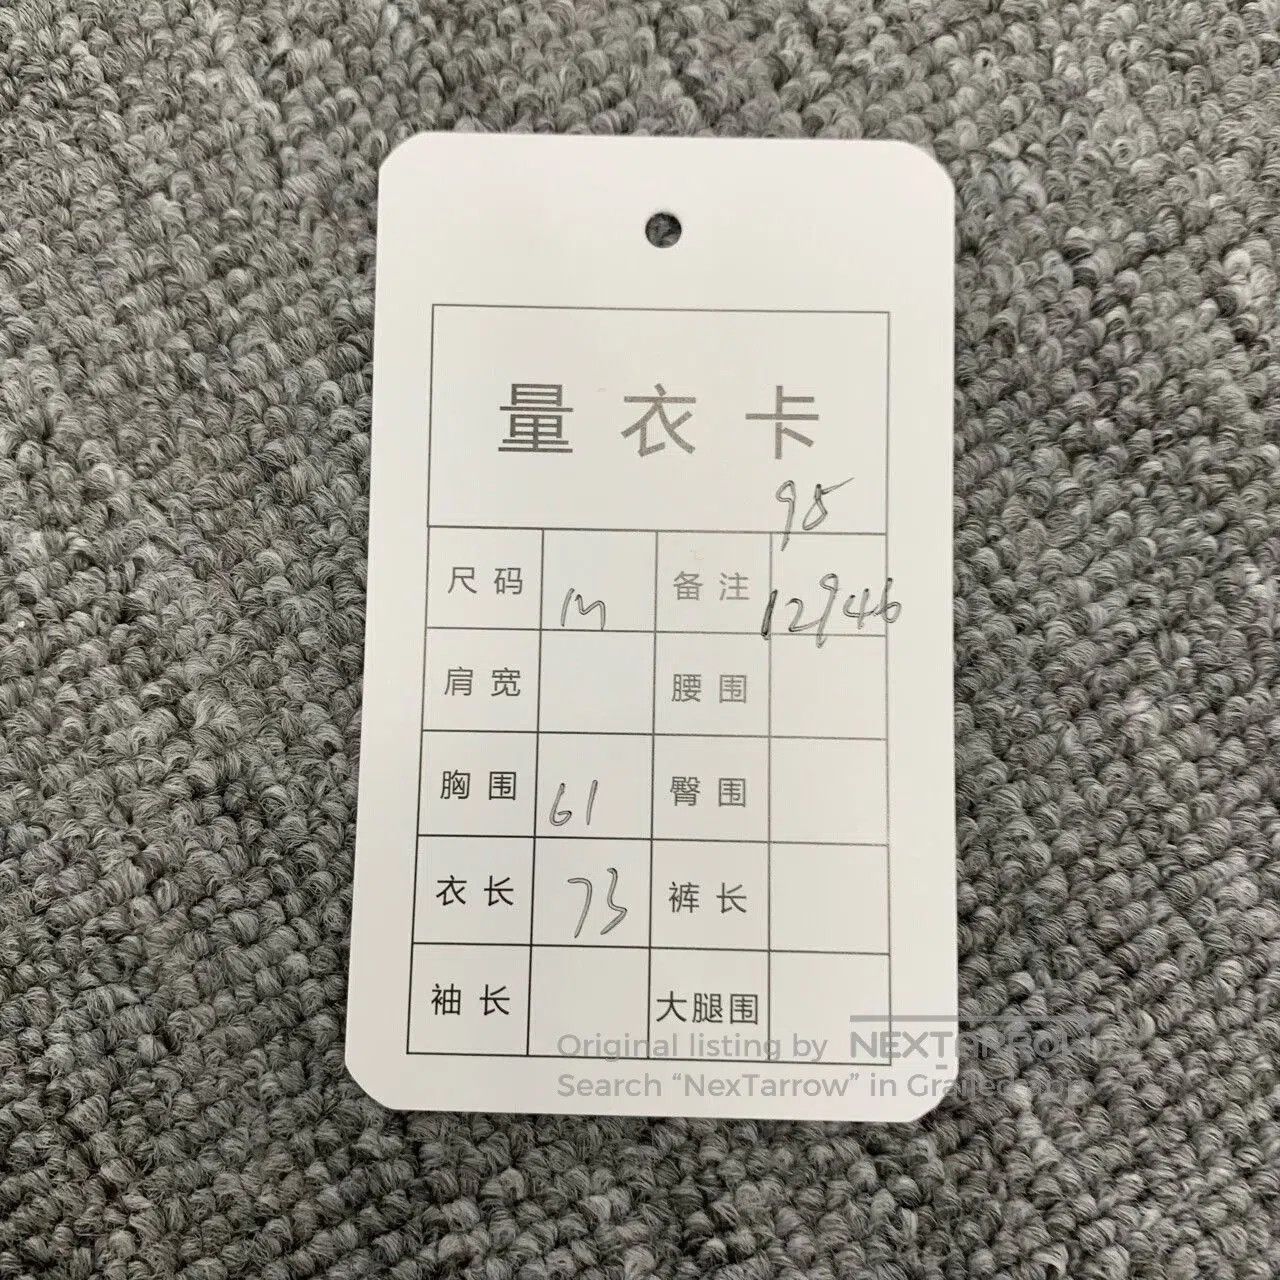 量衣卡
98
尺码 M 备注 12946
肩宽 腰围
胸围 61 臀围
衣长 73 裤长
袖长 大腿围
Original listing by NEXTARROW
Search “NexTarrow” in Grailed app